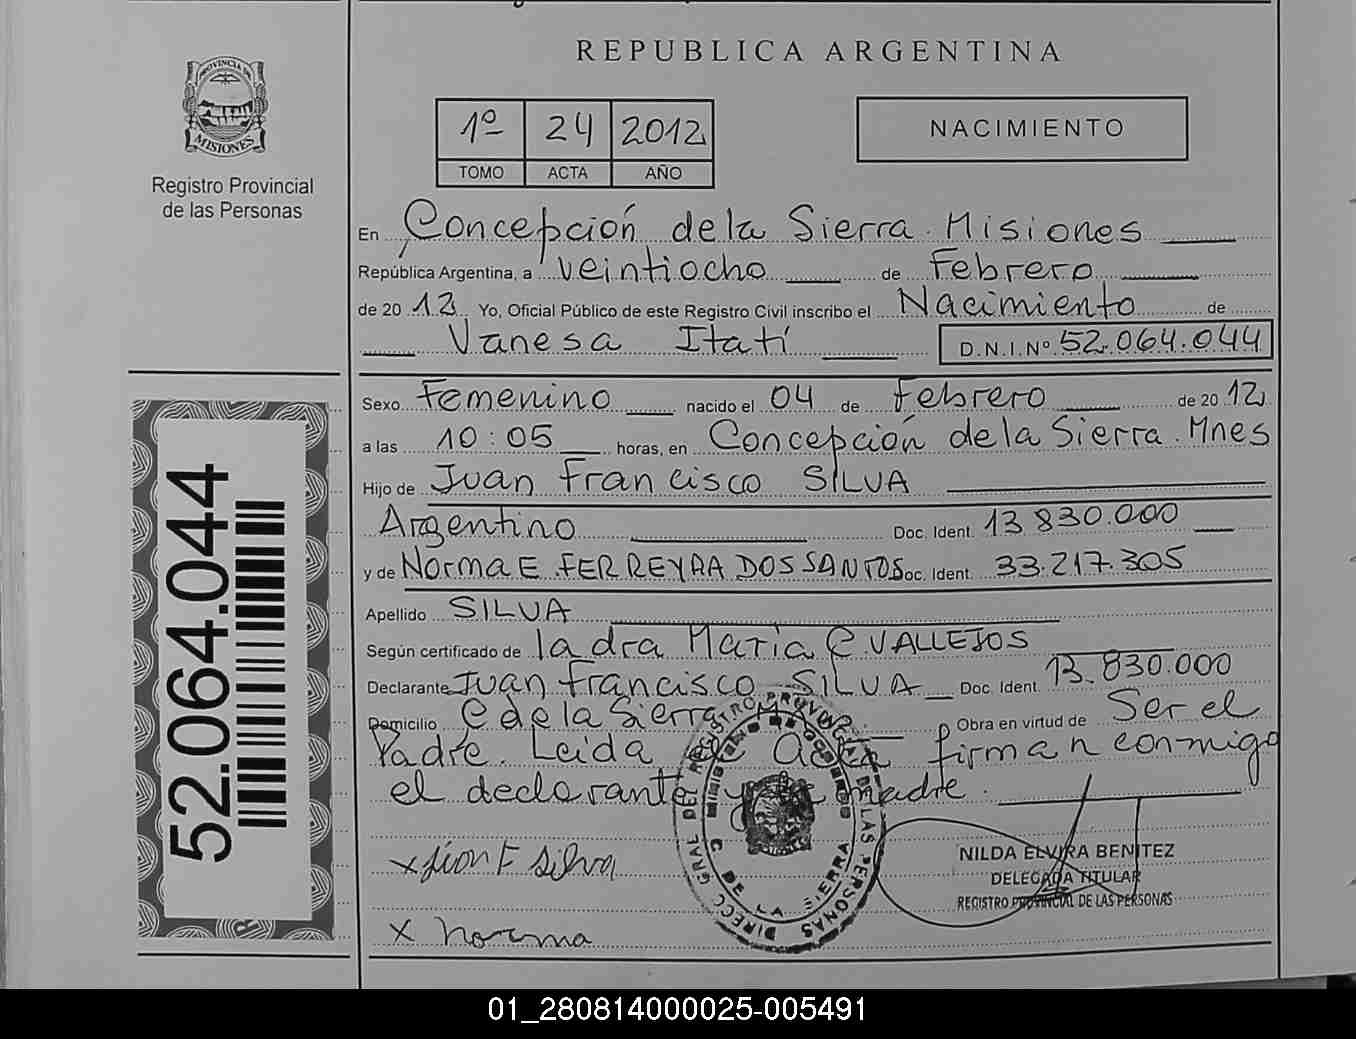 REPUBLICA ARGENTINA
PROVINCIA DE
MISIONES
Registro Provincial
de las Personas
1º 24 2012
TOMO ACTA AÑO
NACIMIENTO
En Concepción de la Sierra. Misiones
República Argentina, a veintiocho de Febrero
de 2012 Yo, Oficial Público de este Registro Civil inscribo el Nacimiento de
Vanesa Itatí D.N.I.Nº 52.064.044
Sexo Femenino nacido el 04 de Febrero de 2012
a las 10:05 horas, en Concepción de la Sierra. Mnes
Hijo de Juan Francisco SILVA
Argentino Doc. Ident. 13.830.000
y de Norma E FERREYRA DOS SANTOS Doc. Ident. 33.217.305
Apellido SILVA
Según certificado de la dra María C. VALLEJOS
Declarante Juan Francisco SILVA Doc. Ident. 13.830.000
Domicilio C de la Sierra Obra en virtud de Ser el
Padre. Leida el Acta firman conmigo
el declarante y la madre.
x Juan F Silva
x Norma
DIRECC GRAL DEL REGISTRO PROVINCIAL DE LAS PERSONAS
C DE LA SIERRA
NILDA ELVIRA BENITEZ
DELEGADA TITULAR
REGISTRO PROVINCIAL DE LAS PERSONAS
52.064.044
01_280814000025-005491